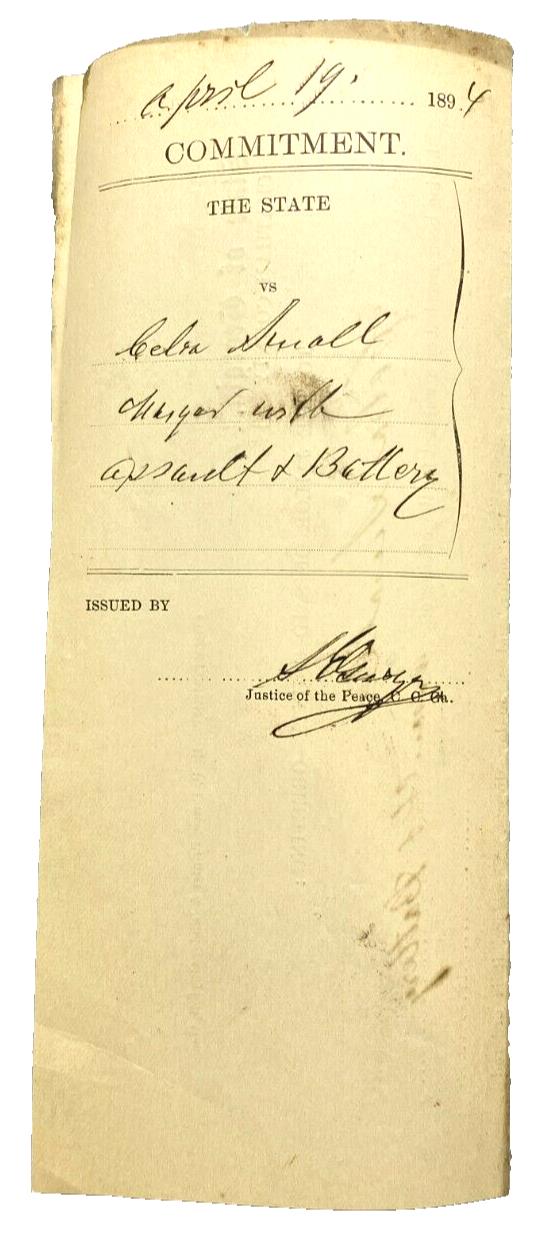 April 19. 1894
COMMITMENT.
THE STATE
VS
Celia Small
charged with
assault & Battery
ISSUED BY
Justice of the Peace, C. C. Ga.